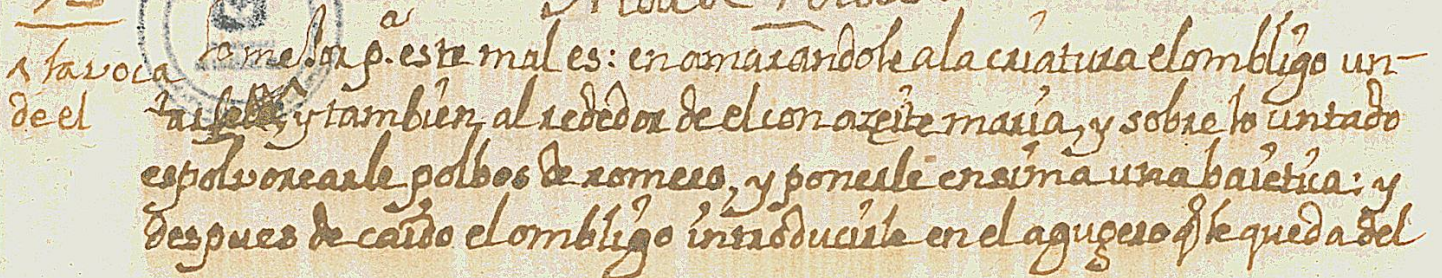 lo mejor p.ª este mal es: en amarandole ala criatura elombligo un-
a la voca
de el
y tambien, al rededor de el con azeite maria, y sobre lo untado
espolvorearle polbos de romero, y ponerle ensima una baietica: y
despues de caido elombligo introducirle en el agugero q̃ le queda del